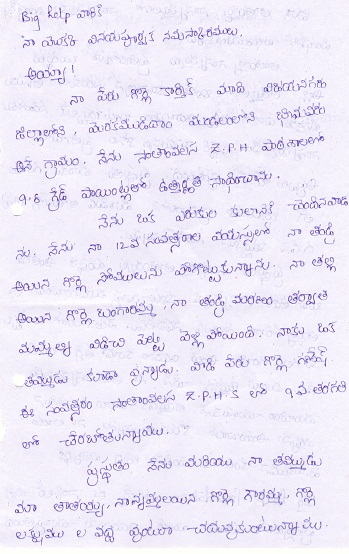 Big help వారికి
నా యొక్క వినయపూర్వక నమస్కారములు.
అయ్యా!
నా పేరు గొర్లె కార్తీక్ మాది విజయనగరం
జిల్లాలోని, మెరకముడిదాం మండలంలోని భైరిపురం
అనే గ్రామం. నేను సాతాంవలస Z.P.H పాఠశాలలో
9.8 గ్రేడ్ పాయింట్లలో ఉత్తీర్ణత సాధించాను.
నేను ఒక కులానికి చెందినవాడ
ను. నేను నా 12వ సంవత్సరాల వయస్సులో నా తండ్రి
అయిన గొర్లె పోగొట్టుకున్నాను. నా తల్లి
అయిన గొర్లె బంగారమ్మ, నా తండ్రి మరణం తర్వాత
మమ్మల్ని విడిచి పెట్టి వెళ్లి పోయింది. నాకు ఒక
తమ్ముడు కూడా వున్నాడు. వాడి పేరు గొర్లె గణేష్
ఈ సంవత్సరం సాతాంవలస Z.P.H లో 9వ తరగతి
లో చేరబోతున్నాడు.
ప్రస్తుతం నేను మరియు నా తమ్ముడు
మా తాతయ్య, నాన్నమ్మలయిన గొర్లె గౌరమ్మ, గొర్లె
ల వద్ద వుంటూ చదువుకుంటున్నాము.